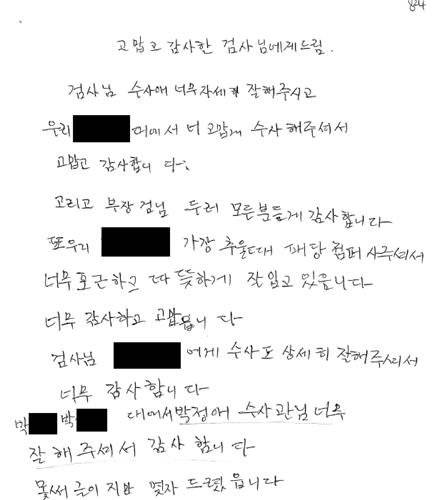 824
고맙고 감사한 검사님에게드림.
검사님 수사애 너무자세히 잘해주시고
우리 대에서 너 고맙게 수사해주셔서
고맙고 감사합니다.
고리고 부장검님 두러 모든분들게 감사합니다
또우리 가장 추울때 패당 컴퍼 사주셔서
너무포근하고 따뜻하게 잘입고 있읍니다
너무 감사하고 고맙읍니다
검사님 어게 수사도 상세히 잘해주셔서
너무 감사합니다
박 박 대에서박정애 수사관님너무
잘해주셔서 감사합니다
못써 글이지만 몇자 드렸읍니다